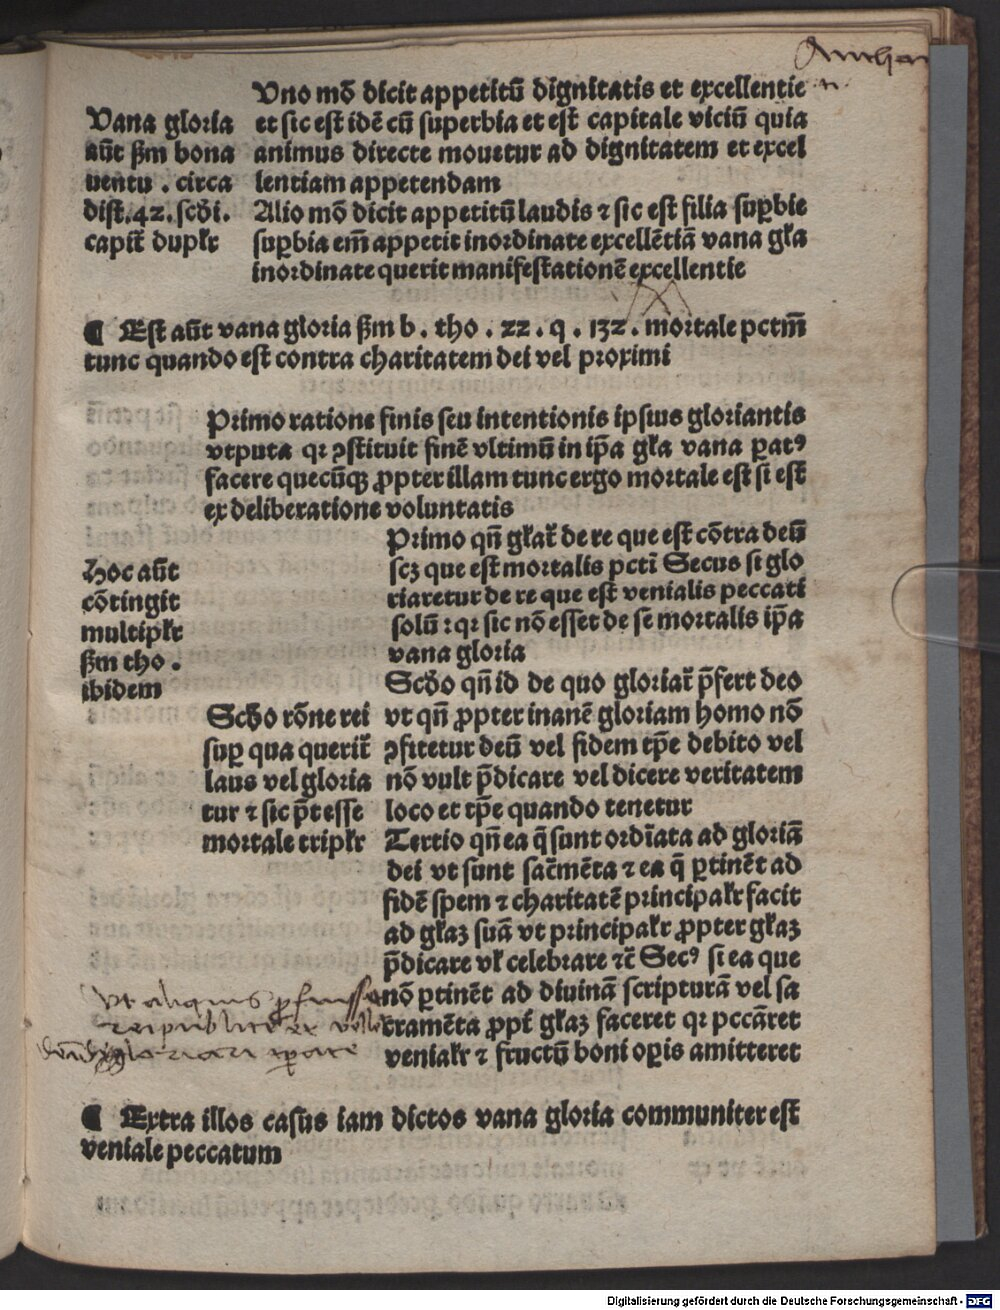 Vana gloria
aūt ẜm bona
uentu . circa
dist. 42. scḋi.
capit̄ duplr̄
Vno mō dicit appetitū dignitatis et excellentie
et sic est idē cū superbia et est capitale viciū quia
animus directe mouetur ad dignitatem et excel
lentiam appetendam
Alio mō dicit appetitū laudis ⁊ sic est filia suꝑbie
suꝑbia em̄ appetit inordinate excellētiā vana gl̄a
inordinate querit manifestationē excellentie
¶ Est aūt vana gloria ẜm b . tho . 22 . q . 132 . mortale pctm̄
tunc quando est contra charitatem dei vel proximi
Hoc aūt
cōtingit
multiplr̄
ẜm tho .
ibidem
Primo ratione finis seu intentionis ipsius gloriantis
vtputa qꝛ ꝯstituit finē vltimū in ip̄a gl̄a vana ꝑatꝰ
facere quecūqꝫ ꝓpter illam tunc ergo mortale est si est
ex deliberatione voluntatis
Scḋo rōne rei
suꝑ qua querit̄
laus vel gloria
tur ⁊ sic p̄t esse
mortale triplr̄
Primo qn̄ gl̄ar̄ de re que est cōtra deū
scꝫ que est mortalis pcti Secus si glo
riaretur de re que est venialis peccati
solū : qꝛ sic nō esset de se mortalis ip̄a
vana gloria
Scḋo qn̄ id de quo gloriar̄ p̄fert deo
vt qn̄ ꝓpter inanē gloriam homo nō
ꝯfitetur deū vel fidem tp̄e debito vel
nō vult p̄dicare vel dicere veritatem
loco et tp̄e quando tenetur
Tertio qn̄ ea q̄ sunt ordīata ad gloriā
dei vt sunt sac̄mēta ⁊ ea q̄ ꝑtinēt ad
fidē spem ⁊ charitatē principalr̄ facit
ad gl̄aꝫ suā vt principalr̄ ꝓpter gl̄aꝫ
p̄dicare vl̄ celebrare ⁊c̄ Secꝰ si ea que
nō ꝑtinēt ad diuinā scripturā vel sa
cramēta ꝓpt̄ gl̄aꝫ faceret qꝛ pccāret
venialr̄ ⁊ fructū boni oꝑis amitteret
Vt aliquis
¶ Extra illos casus iam dictos vana gloria communiter est
veniale peccatum
Digitalisierung gefördert durch die Deutsche Forschungsgemeinschaft - DFG